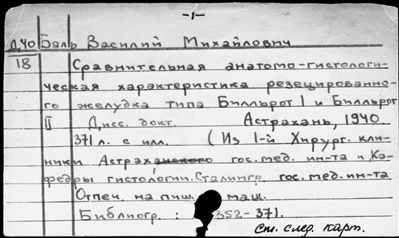 -1-
Д40 Баль Василий Михайлович
18 Сравнительная анатомо-гистологи-
ческая характеристика резецированно-
го желудка типа Билльрот I и Билльрот
II Дисс. докт. Астрахань, 1940
371 л. с илл. (Из 1-й Хирург. кли-
ники Астраханского гос. мед. ин-та и Ка-
федры гистологии. Сталингр. гос. мед. ин-та
Отпеч. на пиш. маш.
Библиогр.: 352-371.
См. след. карт.